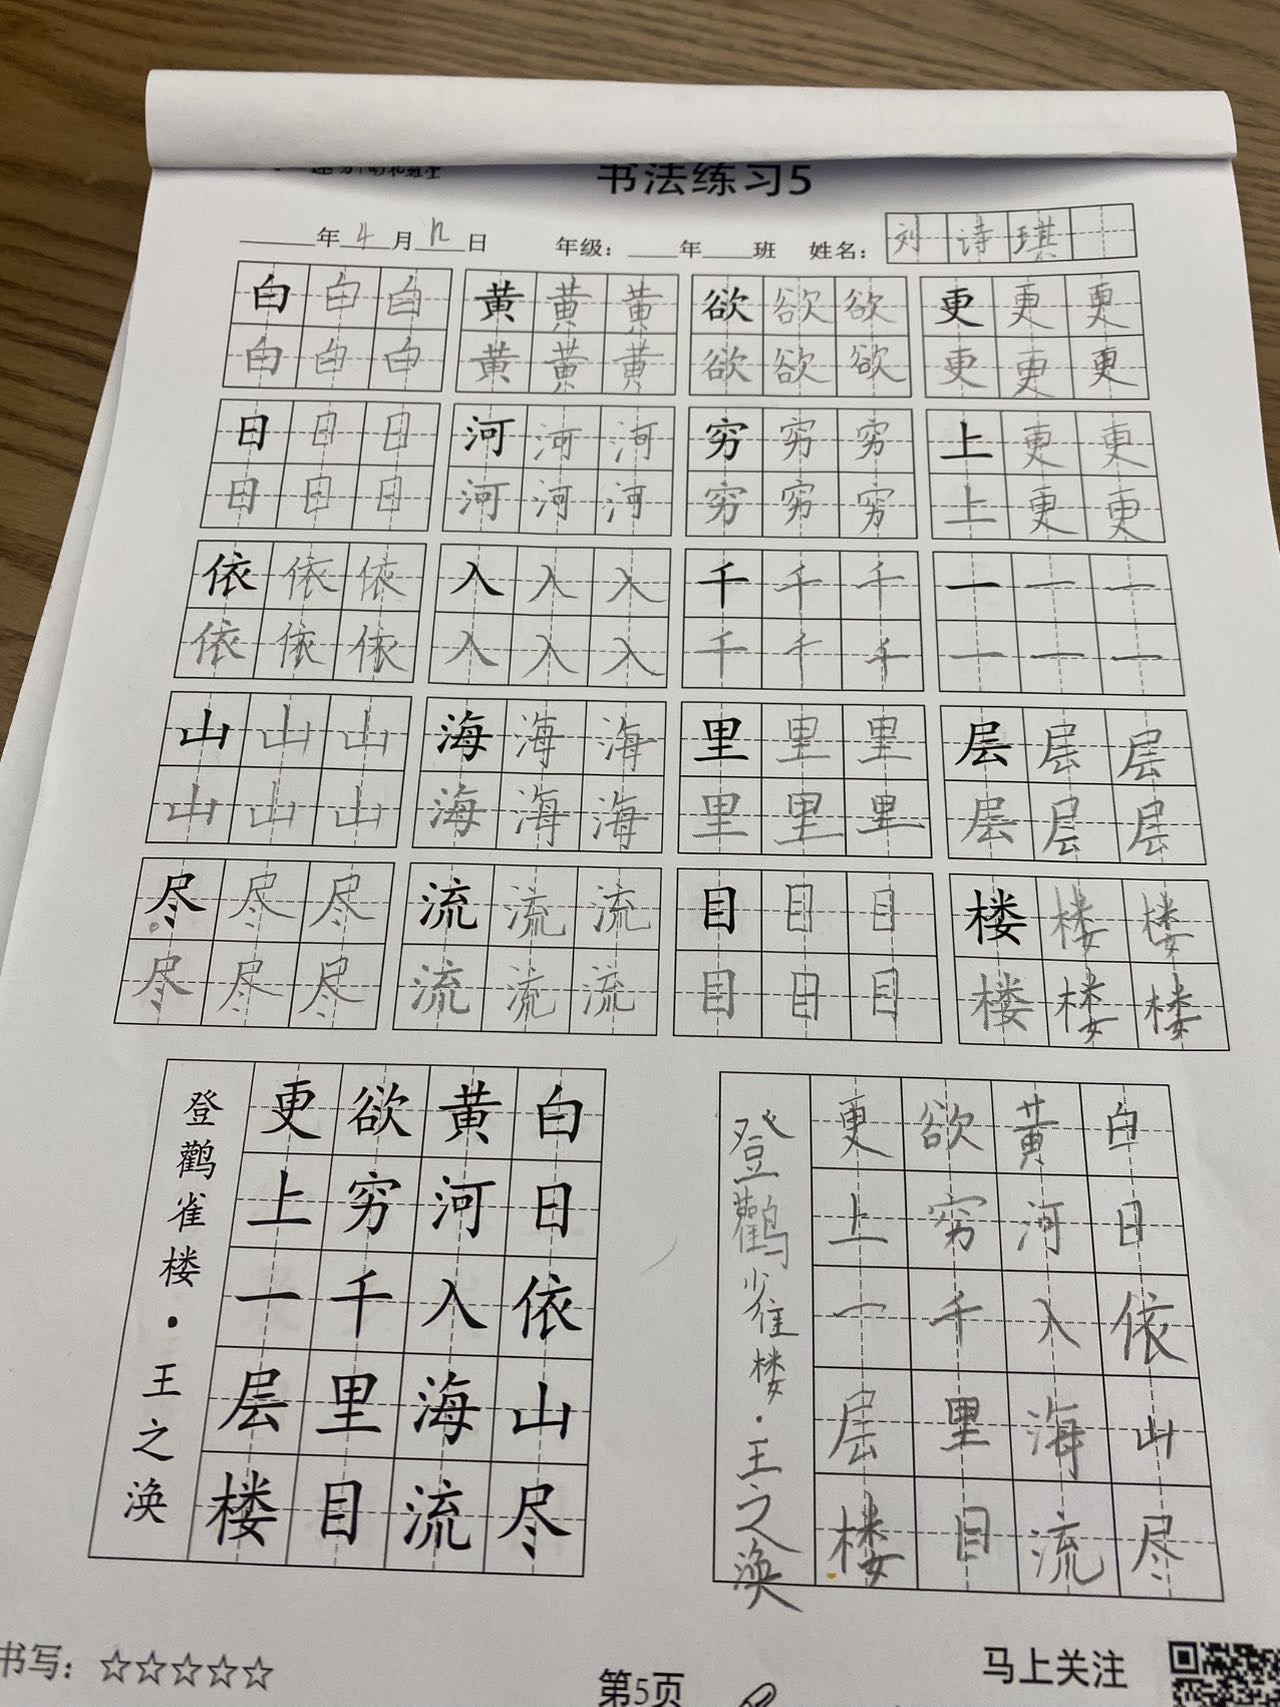 书法练习5
年 4 月 12 日 年级: 年 班 姓名: 刘诗琪
白白白 黄黄黄 欲欲欲 更更更
白白白 黄黄黄 欲欲欲 更更更
日日日 河河河 穷穷穷 上更更
日日日 河河河 穷穷穷 上更更
依依依 入入入 千千千 一一一
依依依 入入入 千千千 一一一
山山山 海海海 里里里 层层层
山山山 海海海 里里里 层层层
尽尽尽 流流流 目目目 楼楼楼
尽尽尽 流流流 目目目 楼楼楼
白日依山尽
黄河入海流
欲穷千里目
更上一层楼
登鹳雀楼·王之涣
白日依山尽
黄河入海流
欲穷千里目
更上一层楼
登鹳雀楼·王之涣
书写: ☆☆☆☆☆
第5页
马上关注